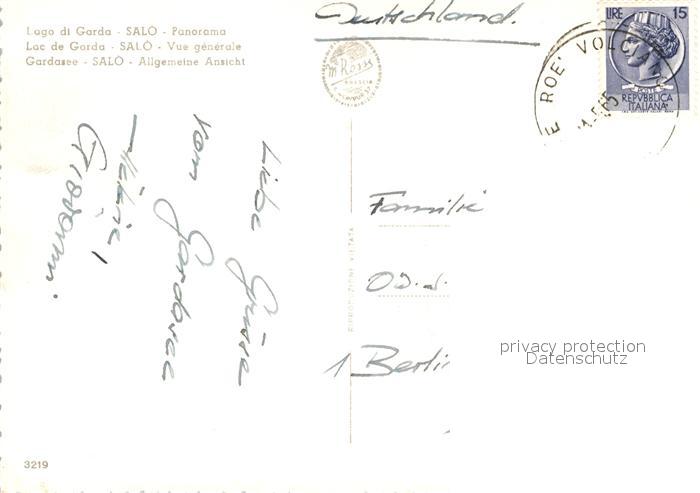 Lago di Garda - SALÒ - Panorama
Lac de Garda - SALÒ - Vue générale
Gardasee - SALÒ - Allgemeine Ansicht
Deutschland.
LIRE 15
POSTE
REPVBBLICA
ITALIANA
E ROE' VOLC
BRESCIA
Liebe Grüsse
vom Gardasee
Giovanni.
RIPRODUZIONE VIETATA
Familie
1 Berlin
privacy protection
Datenschutz
3219